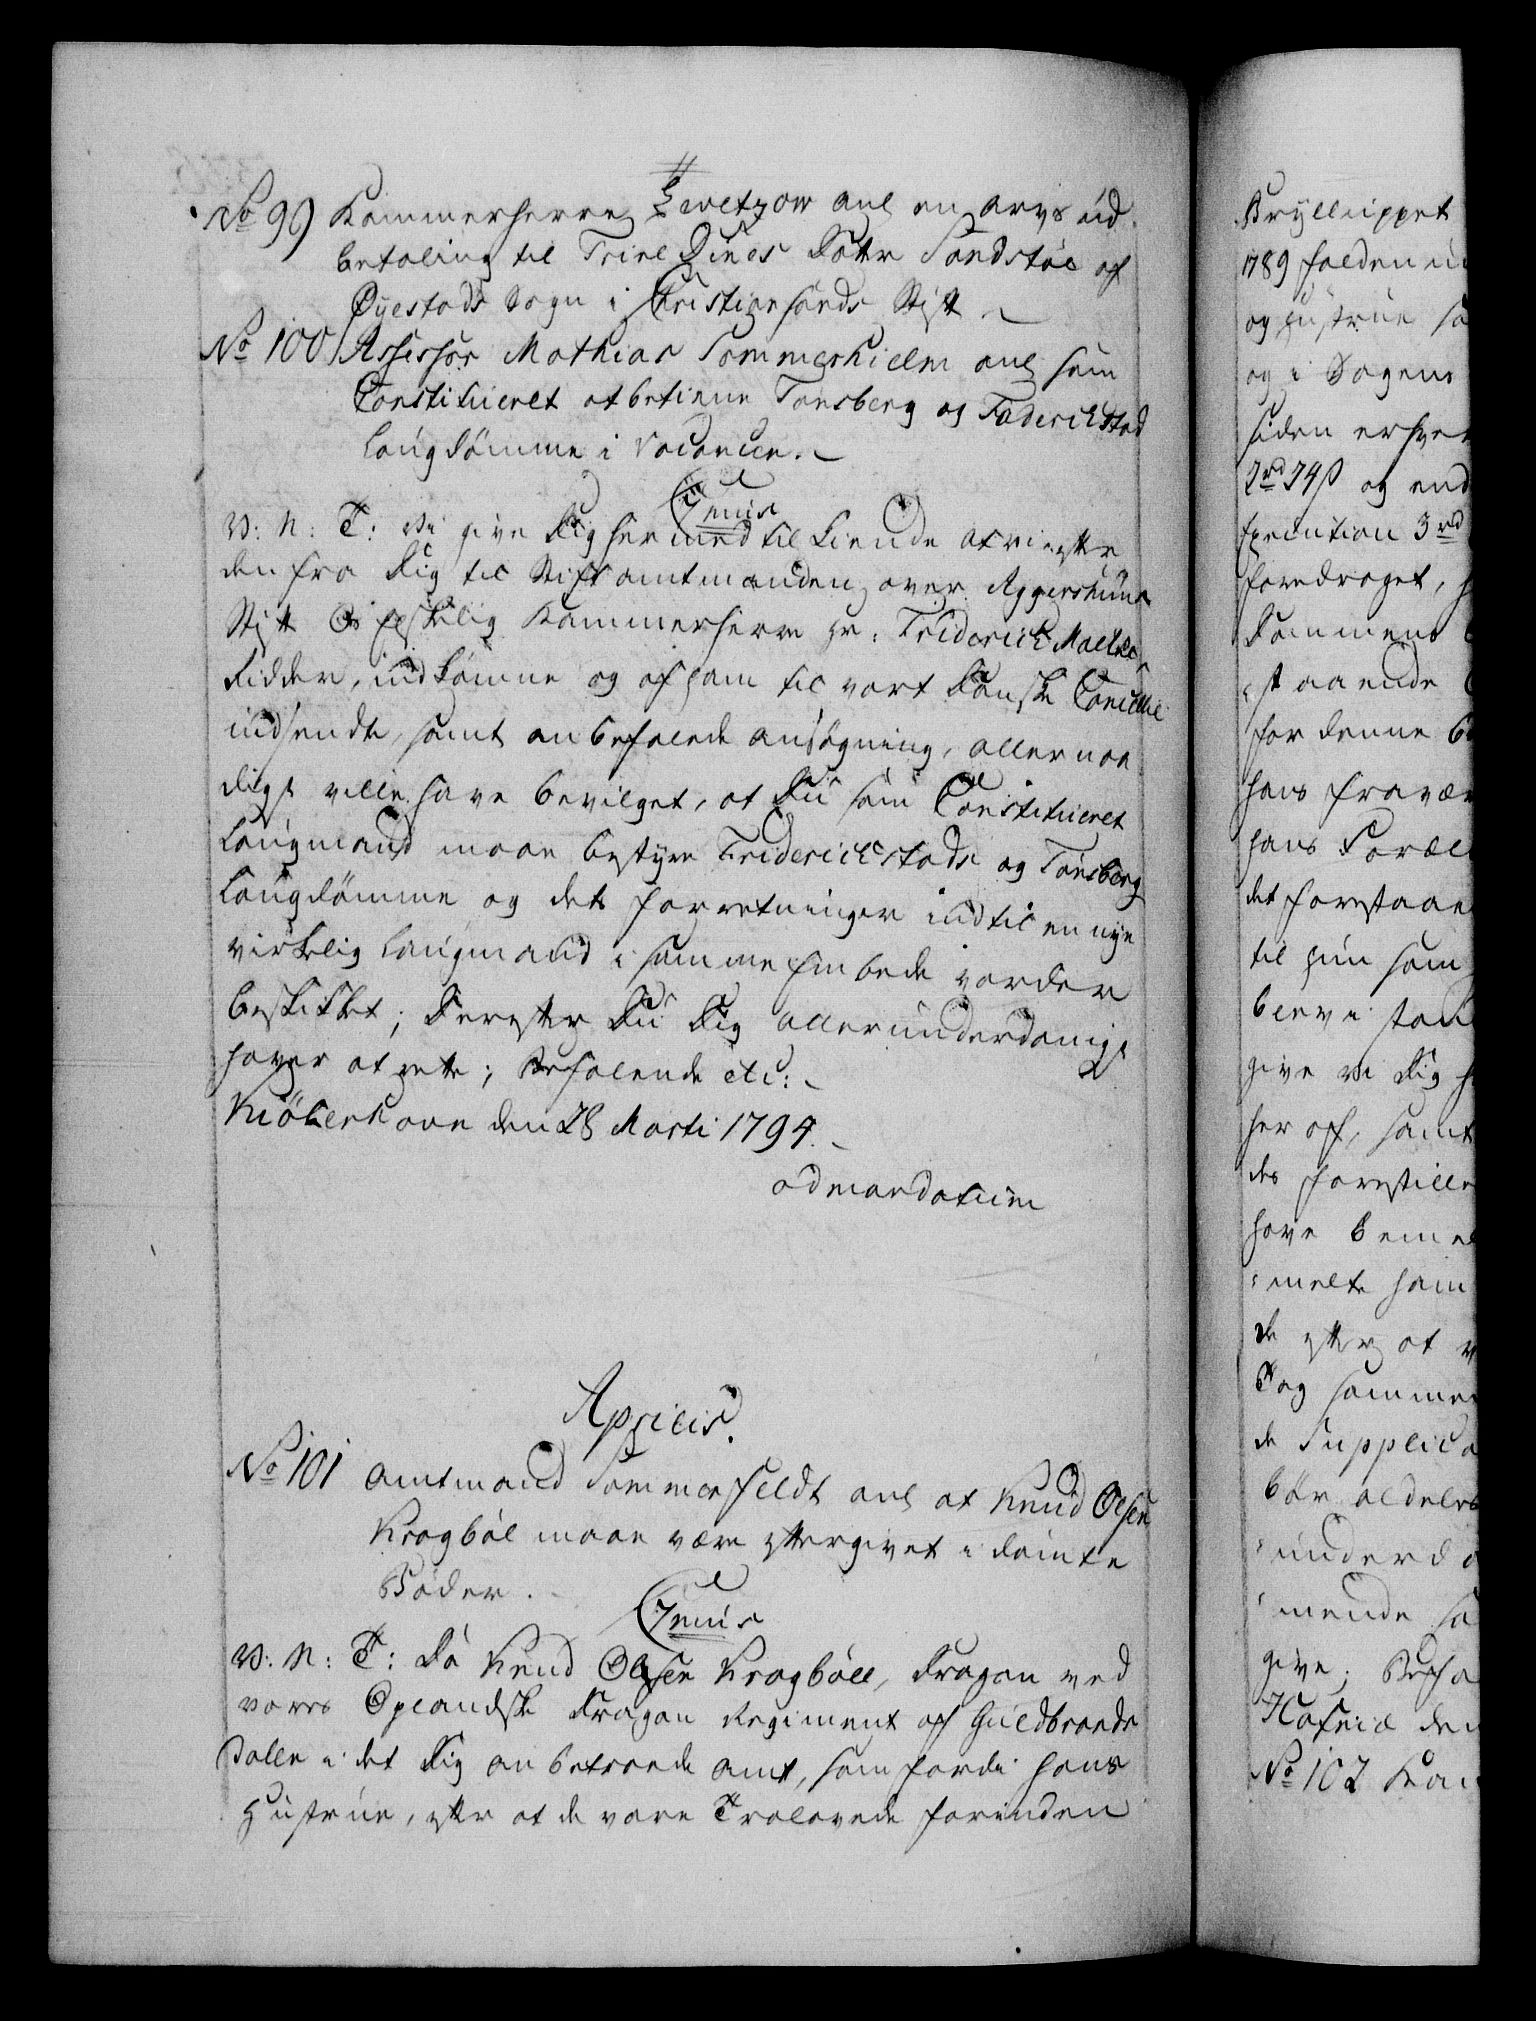 No 99 Kammerherre Levetzow anl en arvs ud¬
betaling til Trine Dines Datter Sandstøe af
Øyestads Sogn i Christiansands Stift
No 100 Assessor Mathias Sommerhielm anl som
Constitueret at betiene Tonsberg og Friderichstad
Laugdömme i Vacancen.
Genus
V: N: T: Vi give Dig hermed tilkiende at vi efter
den fra Dig til Stiftamtmanden over Aggershuus
Stift Os Elskelig Kammerherre Hr. Friderich Moltke
Ridder, indkomne og af ham til vort Danske Cancellie
indsendte, samt anbefalede ansøgning, allernaa¬
digst ville have bevilget, at Du som Constitueret
Laugmand maae bestyre Friderichstads og Tonsberg
Laugdömme og dets forretninger indtil en nye
virkelig Laugmand i samme Embede vorder
beskikket; Derefter Du Dig allerunderdanigst
haver at rette; Befalende etc:
Kiöbenhavn den 28 Marti 1794.
ad mandatum
Aprilis.
No 101 Amtmand Sommerfeldt anl at Knud Olsen
Kragböl maae være eftergivet i dømte
Bøder.
Genus
V: N: T: Da Knud Olsen Kragböll, Dragon ved
vores Oplandske Dragon Regiment af Guldbrands
Dalen i det Dig anbetroede Amt, som fordi hans
Hustrue, efter at de vare Trolovede forinden
Bryllluppet
1789 falden i
og Hustrue
og i Sagens
siden erhver
2rd 74 s og end
Execution 3rd
foredraget,
Dommens
staaende
for denne
hans fravær
hans Foræl
det forestaae
til hun som
bleve
give vi Dig
her af, samt
des forestille
have bemel
melte ham
de efter at
Dag sammen
de Supplica
bør aldeles
underd
mende
give; Befa
Hafniæ den
No 102 Kam